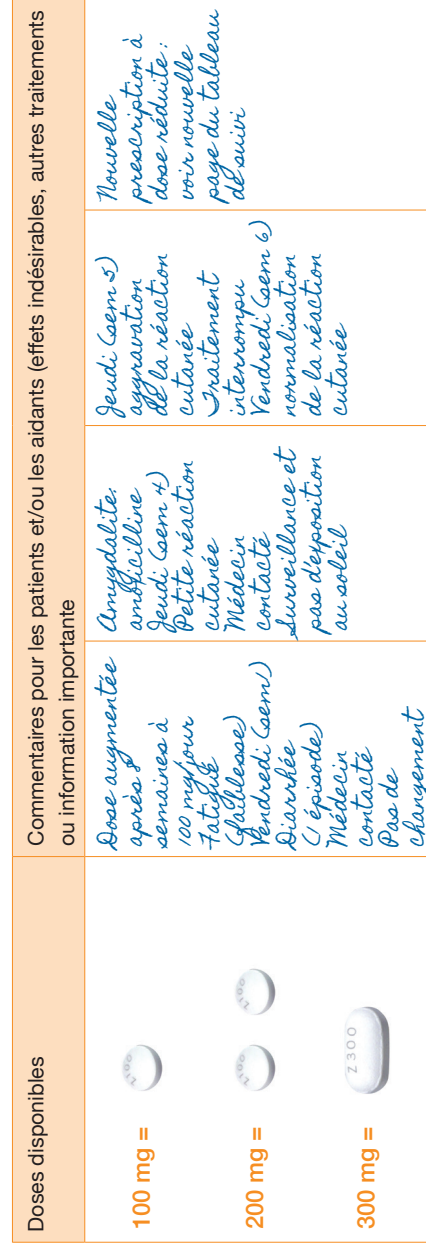 Doses disponibles
100 mg =
200 mg =
300 mg =
Z 300
Commentaires pour les patients et/ou les aidants (effets indésirables, autres traitements
ou information importante
Dose augmentée
après 8
semaines à
100 mg/jour
Fatigué
(faiblesse)
Vendredi (sem)
Diarrhée
(1 épisode)
Médecin
contacté
Pas de
changement
Amygdalite.
amoxicilline
Jeudi (sem 4)
Petite réaction
cutanée
Médecin
contacté
Surveillance et
pas d'exposition
au soleil
Jeudi (sem 5)
aggravation
de la réaction
cutanée
Traitement
interrompu
Vendredi (sem 6)
normalisation
de la réaction
cutanée
Nouvelle
prescription à
dose réduite :
voir nouvelle
page du tableau
de suivi